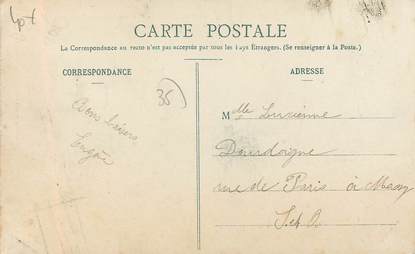 CARTE POSTALE
La Correspondance au recto n'est pas acceptée par tous les Pays Étrangers. (Se renseigner à la Poste.)
CORRESPONDANCE
ADRESSE
35
Bons baisers
Mlle Lucienne
Dourdoigne
rue de Paris à
S et O